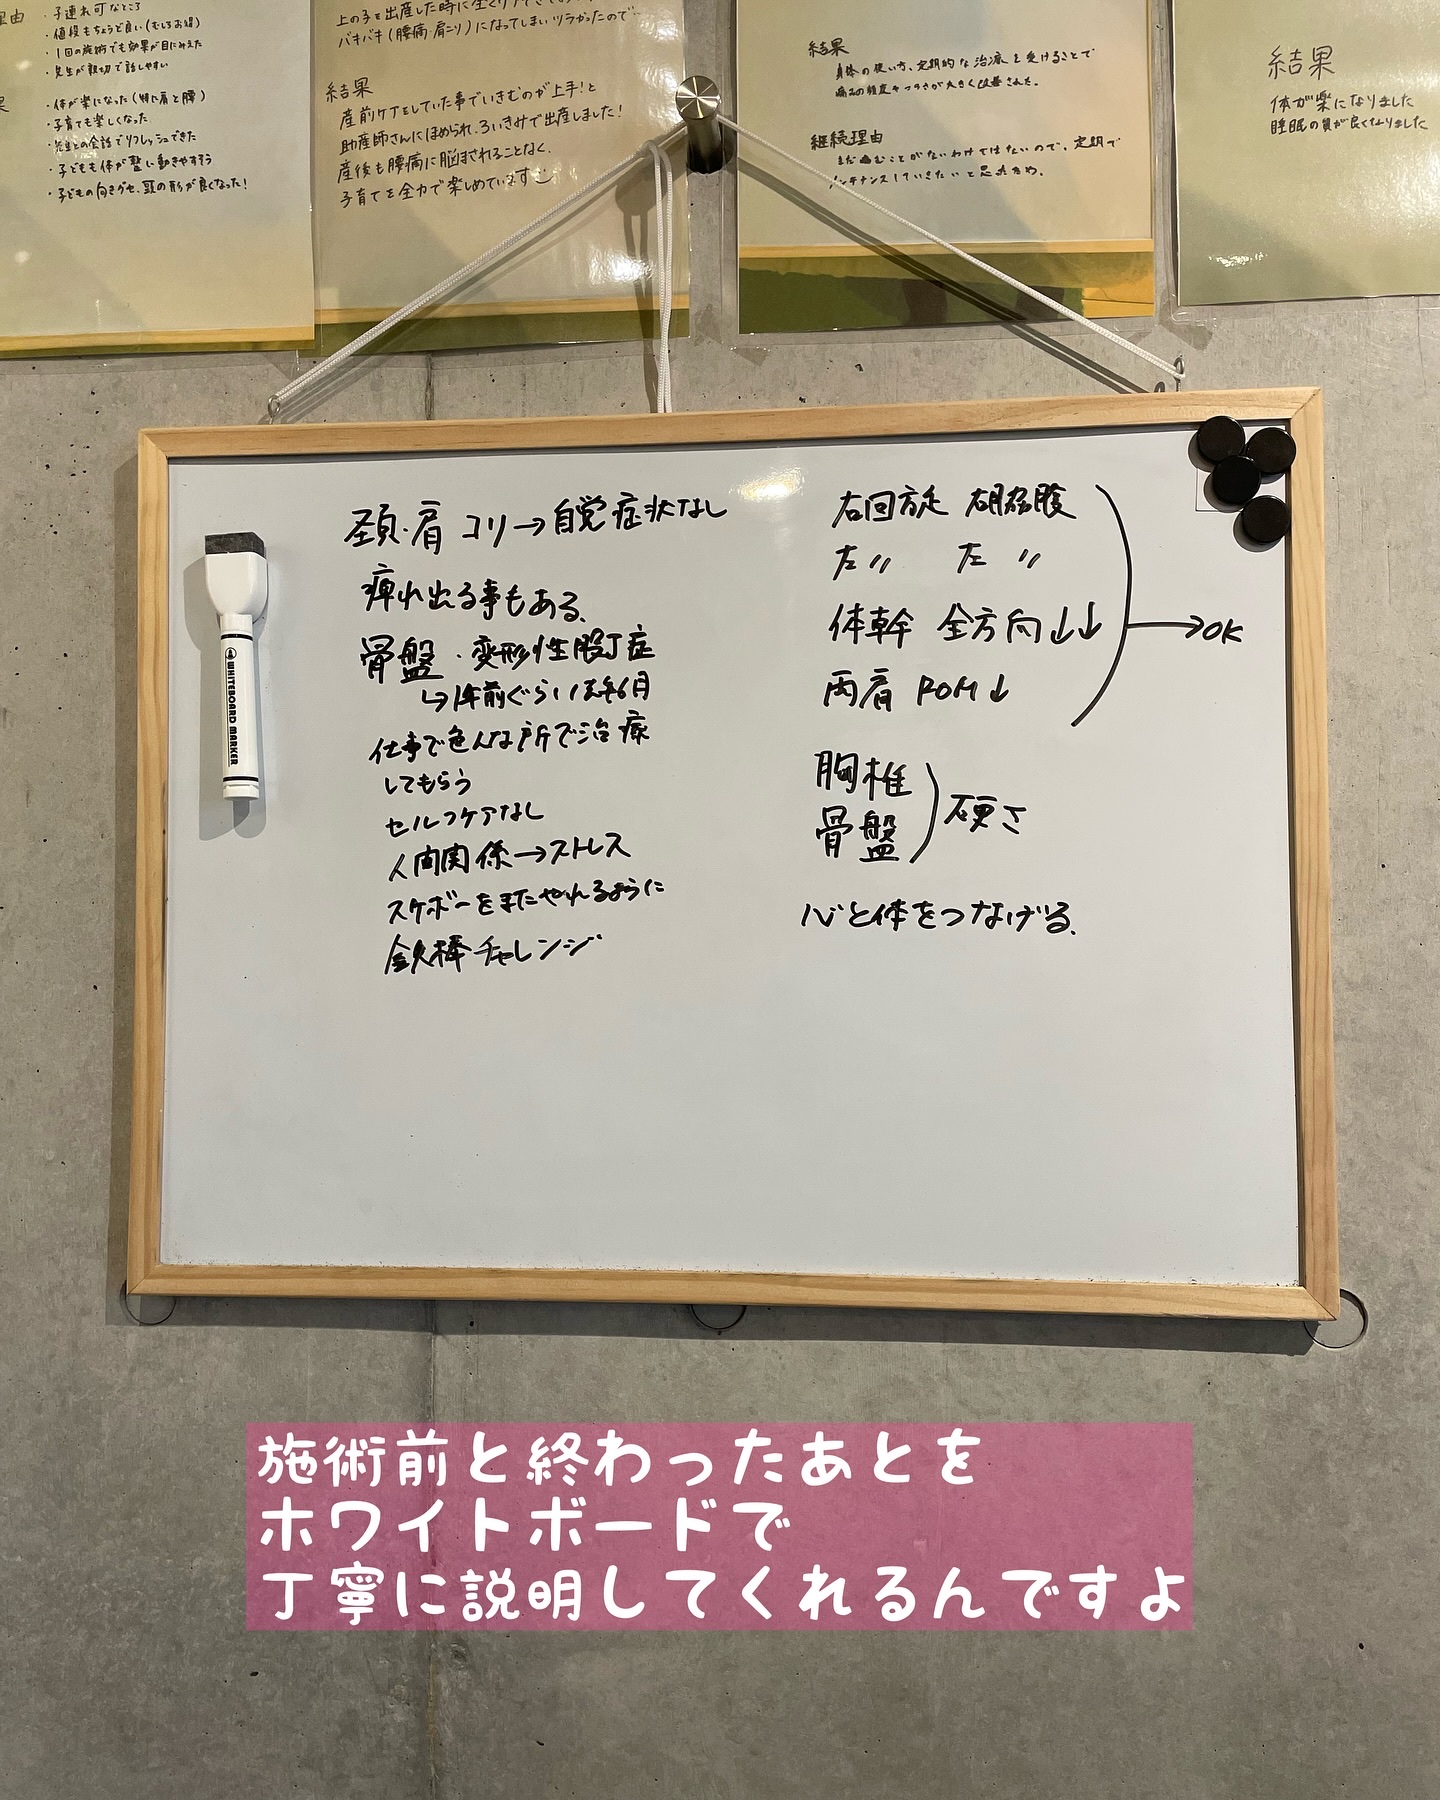 理由
・子連れ可なところ
・値段もちょうど良い(むしろお得)
・1回の施術でも効果が目にみえた
・先生が親切で話しやすい
果
・体が楽になった(特に肩と腰)
・子育ても楽しくなった
・先生との会話でリフレッシュできた
・子どもも体が整い動きやすそう
・子どもの向きグセ、頭の形が良くなった!
上の子を出産した時に全くケアできて
バキバキ(腰痛・肩コリ)になってしまいツラかったので
結果
産前ケアをしていた事でいきむのが上手!と
助産師さんにほめられ、3いきみで出産しました!
産後も腰痛に悩まされることなく、
子育てを全力で楽しめています
結果
身体の使い方、定期的な治療を受けることで
痛みの頻度やツラさが大きく改善された。
継続理由
まだ痛むことがないわけではないので、定期で
メンテナンスしていきたいと思ったため。
結果
体が楽になりました
睡眠の質が良くなりました
頚・肩 コリ→自覚症状なし
痺れ出る事もある、
骨盤・変形性股丁症
↳1年前ぐらい 去年6月
仕事で色んな所で治療
してもらう
セルフケアなし
人間関係→ストレス
スケボーをまたやれるように
鉄棒チャレンジ
右回旋 右
左〃 左〃
体幹 全方向↓↓
両肩 ROM↓
→OK
胸椎
骨盤
硬さ
心と体をつなげる、
WHITEBOARD MARKER
施術前と終わったあとを
ホワイトボードで
丁寧に説明してくれるんですよ